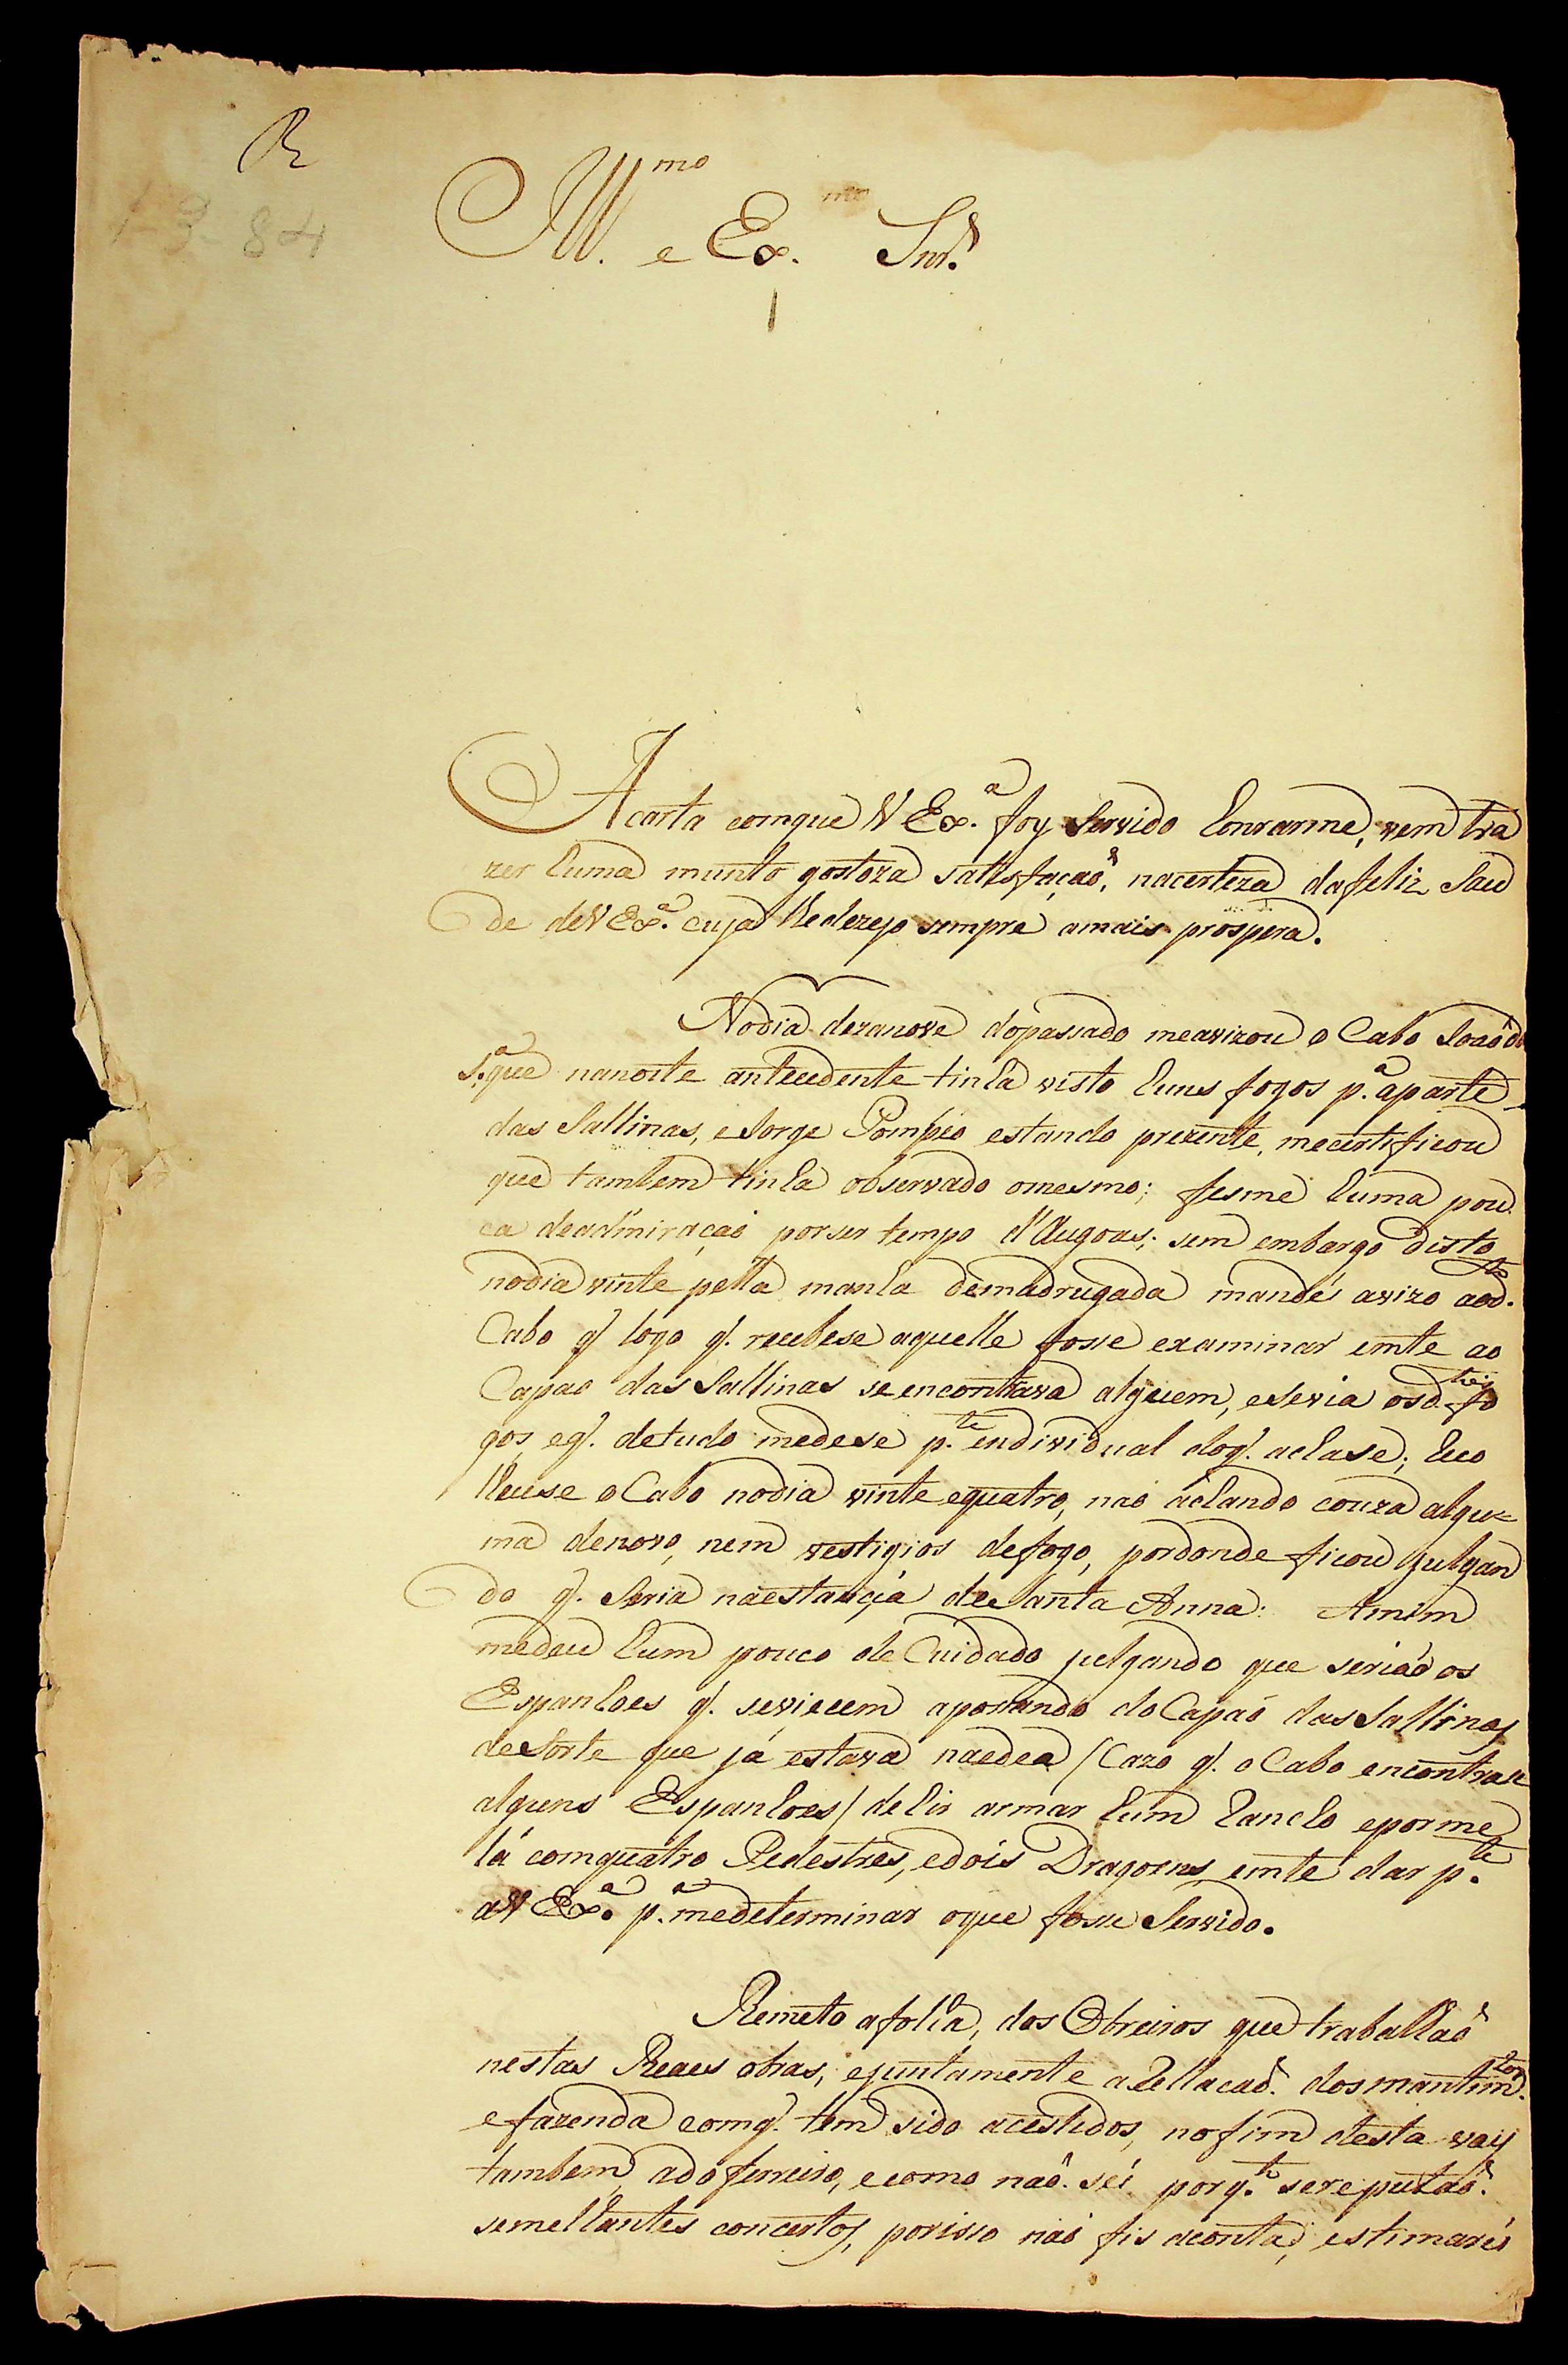 R
1-3-84
Ill.mo e Ex.mo Snr.
A carta comque V Ex.a foy Servido honrarme, vem tra
zer huma munto gostoza sattisfaçaõ, nacerteza dafeliz Sau
de deV Ex.a cuja lhedezejo sempre amais prospera.
Nodia dezanove dopassado meavizou o Cabo Joaõ da
S.a que nanoite antecedente tinha visto huns fogos p.a aparte
das Sallinas, e Jorge Pompeo estando prezente, mecertificou
que tambem tinha observado omesmo; fesme huma pou
ca deadmiraçaõ porser tempo d'Augoas; sem embargo disto
nodia vinte pella manha demadrugada mandei avizo aod.to
Cabo q' logo q'. recebese aquelle fosse examinar emte ao
Capaõ das Sallinas se encontrava alguem, esevia osd.tos fo
gos, eq'. detudo medese p.te endividual doq'. achase; Reco
lheuse o Cabo nodia vinte equatro, naõ achando couza algu=
ma denovo, nem vestigios defogo, pordonde ficou julgan
do q'. Seria naestancia de Santa Anna: Amim
medeu hum pouco de Cuidado julgando que seriaõ os
Espanhoes q'. seviecem aposando do Capaõ das Sallinas
desorte que já estava naedea (Cazo q'. o Cabo encontrase
alguns Espanhoes) de hir armar hum Rancho eporme
lá comquatro Pedestres, edois Dragoens, emte dar p.te
aV Ex.a p.a medeterminar oque fosse Servido.
Remeto afolha, dos Obreiros que trabalhaõ
nestas Reaes obras, ejuntamente aRellacaõ. dosmantim.tos
efazenda comq'. tem sido acestidos, nofim desta vay
tambem, adoferreiro, ecomo naõ. sei porq.to sereputaõ.
semelhantes concertos, porisso naõ fis aconta, estimarei